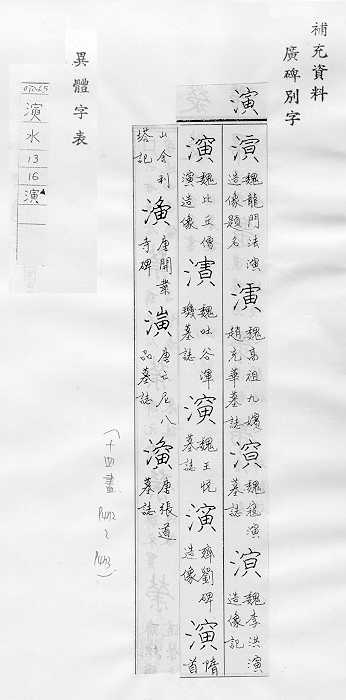 補充資料
廣碑別字
演
演魏龍門法演造像題名演魏高祖九嬪趙充華墓誌演魏寇演墓誌演魏李洪演造像記
演魏比丘僧演造像演魏吐谷渾璣墓誌演魏王悅墓誌演齊劉碑造像演隋首
山舍利塔記演唐開業寺碑演唐亡尼八品墓誌演唐張道墓誌
(十四畫
異體字表
演
水
13
16
演